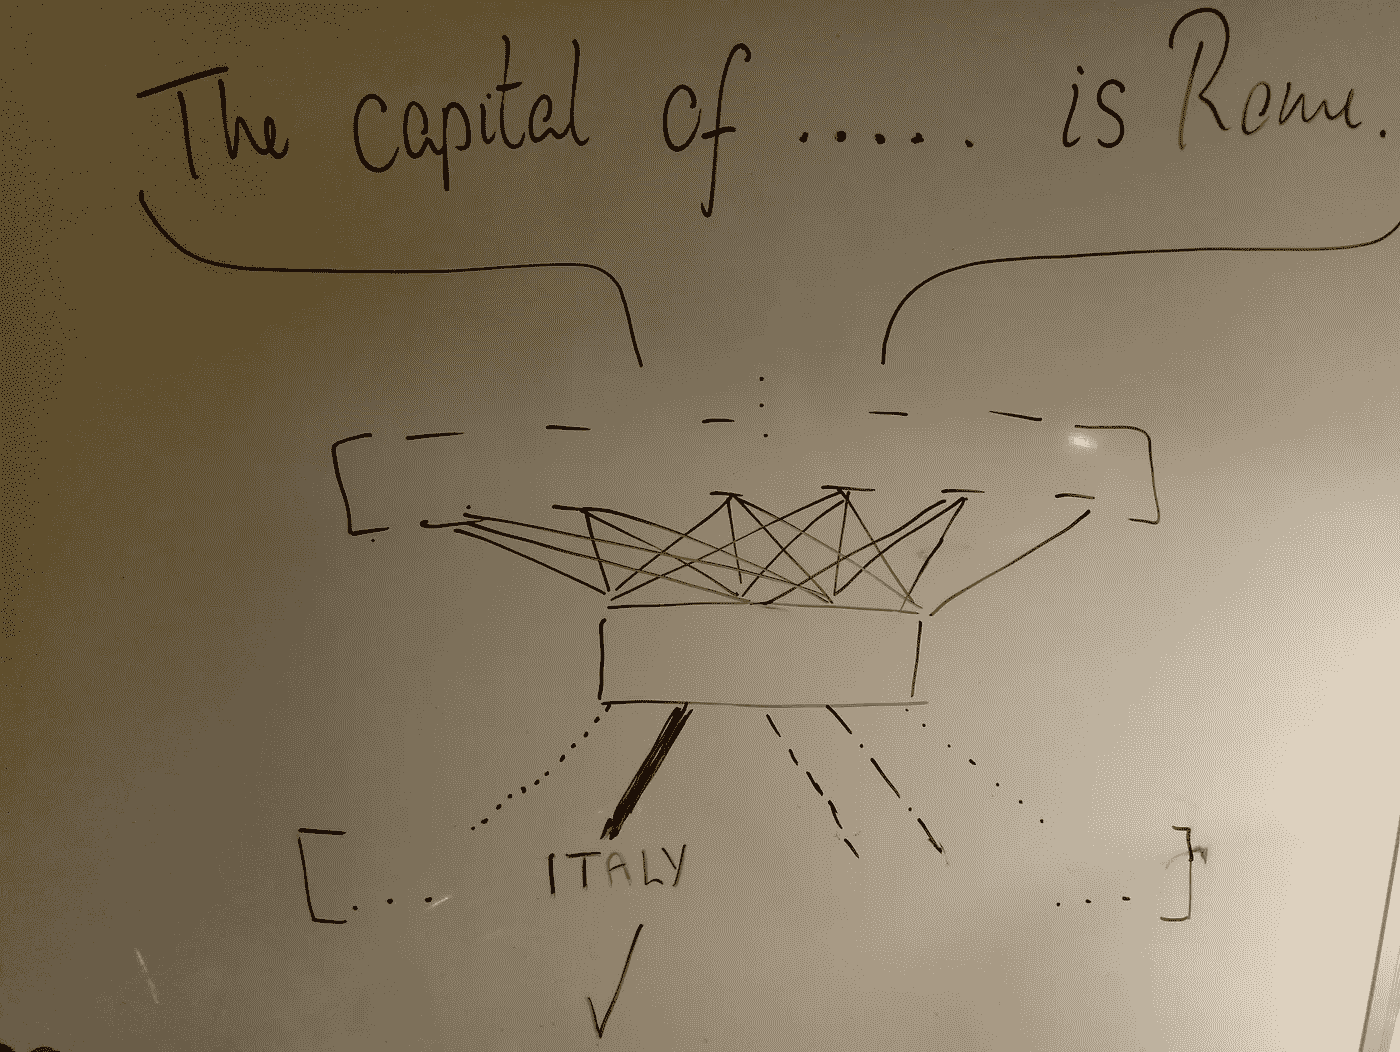 The capital of ..... is Rome.
ITALY